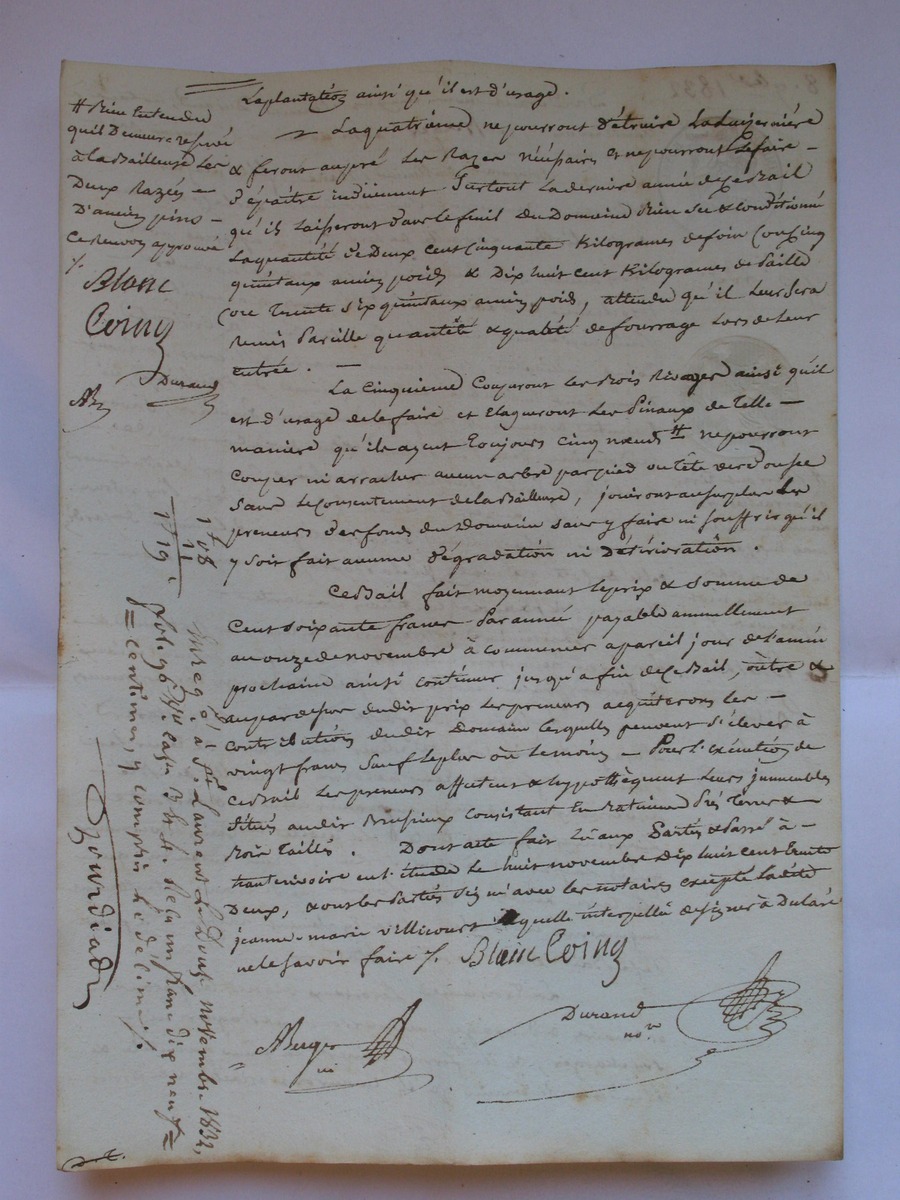 La plantation ainsi qu'il est d'usage.
La quatrième ne pourront détruire La Luzernière
& feront au pré Les Razes nécéssaires et ne pourront Le faire
dépaître indûement Surtout La derniere année de ce Bail
qu'ils Laisseront dans le fenil du Domaine Bien Sec & conditionné
La quantité De Deux cent cinquante Kilogrames de foin (ou cinq
quintaux ancien poids & Dix huit cent Kilogrames de Paille
(ou Trente six quintaux ancien poids, attendu qu'il Leur Sera
Remis Pareille quantité & qualité de fourrage Lors de Leur
entrée.
La Cinquieme Couperont Les Bois ainsi qu'il
est d'usage de le faire et Elagueront Les Pinaux de Telle
maniere qu'ils ayent Toujours cinq nœuds # ne pourront
couper ni arracher aucun arbre par pied ou tête
Sans Le Consentement de La Bailleuse, jouiront au surplus Les
preneurs des fonds du Domaine sans y faire ni souffrir qu'il
y Soit fait aucune dégradation ni Détérioration.
Ce Bail fait moyennant Le prix & Somme de
Cent soixante francs Par année payable annuellement
au onze de novembre à commencer a pareil jour de L'an
prochain ainsi continuer jusqu'à fin de ce Bail, outre &
au par dessus dudit prix Les preneurs acquiterons Les
contributions dudit Domaine Lesquelles peuvent S'élever à
vingt francs Sauf Le plus ou Le moins Pour L'exécution de
ce Bail Les preneurs affectent & hypothèquent Leurs immeubles
Situés audit Consistant En Batimens Prés Terres &
Bois Taillis. Dont acte fait Lû aux Parties & Passé à
en L'étude Le huit novembre Dix huit cent Trente
Deux, & ont Les Parties Signé avec Les notaires excepté Ladite
jeanne-marie Villicourt Laquelle interpellée de signer à Déclaré
ne le Savoir faire /. Blanc Coing
ABerger
Durand
no.re
# Bien Entendu
qu'il Demeure reservé
à La Bailleuse Les
Deux Razées
D'ancien pins
Ce Renvoy approuvé
/.
Blanc
Coing
Durand
AB
1 f 08
11
1 f 19
Enreg.é à S.t Laurent Le Douze novembre 1832,
fol. 96 V.º Case 3 & 4. Reçu un franc dix neuf
centimes, y compris le décime /.